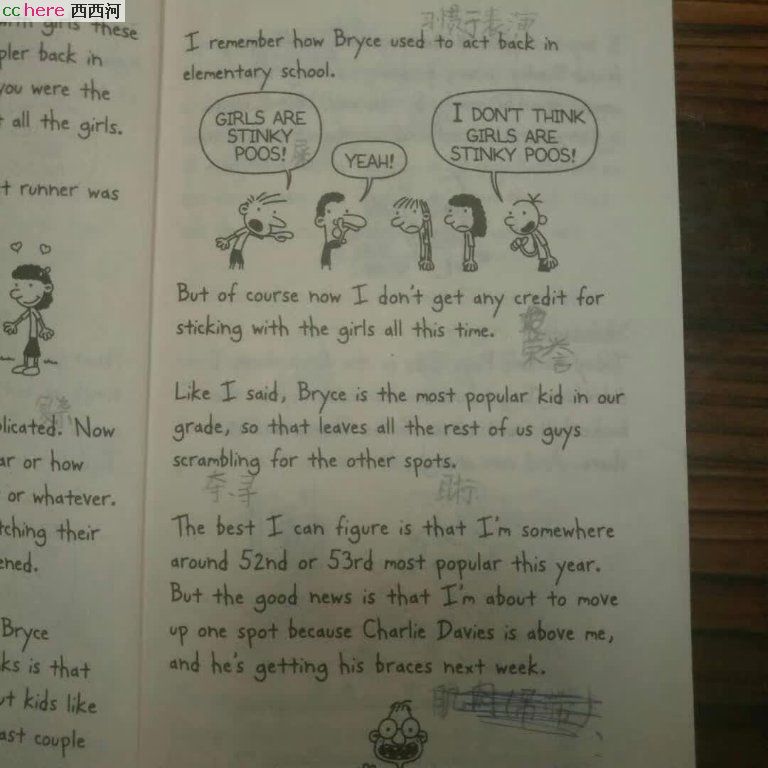 cchere 西西河
girls these
pler back in
you were the
all the girls.
t runner was
licated. Now
ar or how
or whatever.
tching their
ened.
Bryce
ks is that
ut kids like
ast couple
习惯于表演
I remember how Bryce used to act back in
elementary school.
GIRLS ARE
STINKY
POOS!
YEAH!
I DON'T THINK
GIRLS ARE
STINKY POOS!
But of course now I don't get any credit for
sticking with the girls all this time.
荣誉
Like I said, Bryce is the most popular kid in our
grade, so that leaves all the rest of us guys
scrambling for the other spots.
目标
The best I can figure is that I'm somewhere
around 52nd or 53rd most popular this year.
But the good news is that I'm about to move
up one spot because Charlie Davies is above me,
and he's getting his braces next week.